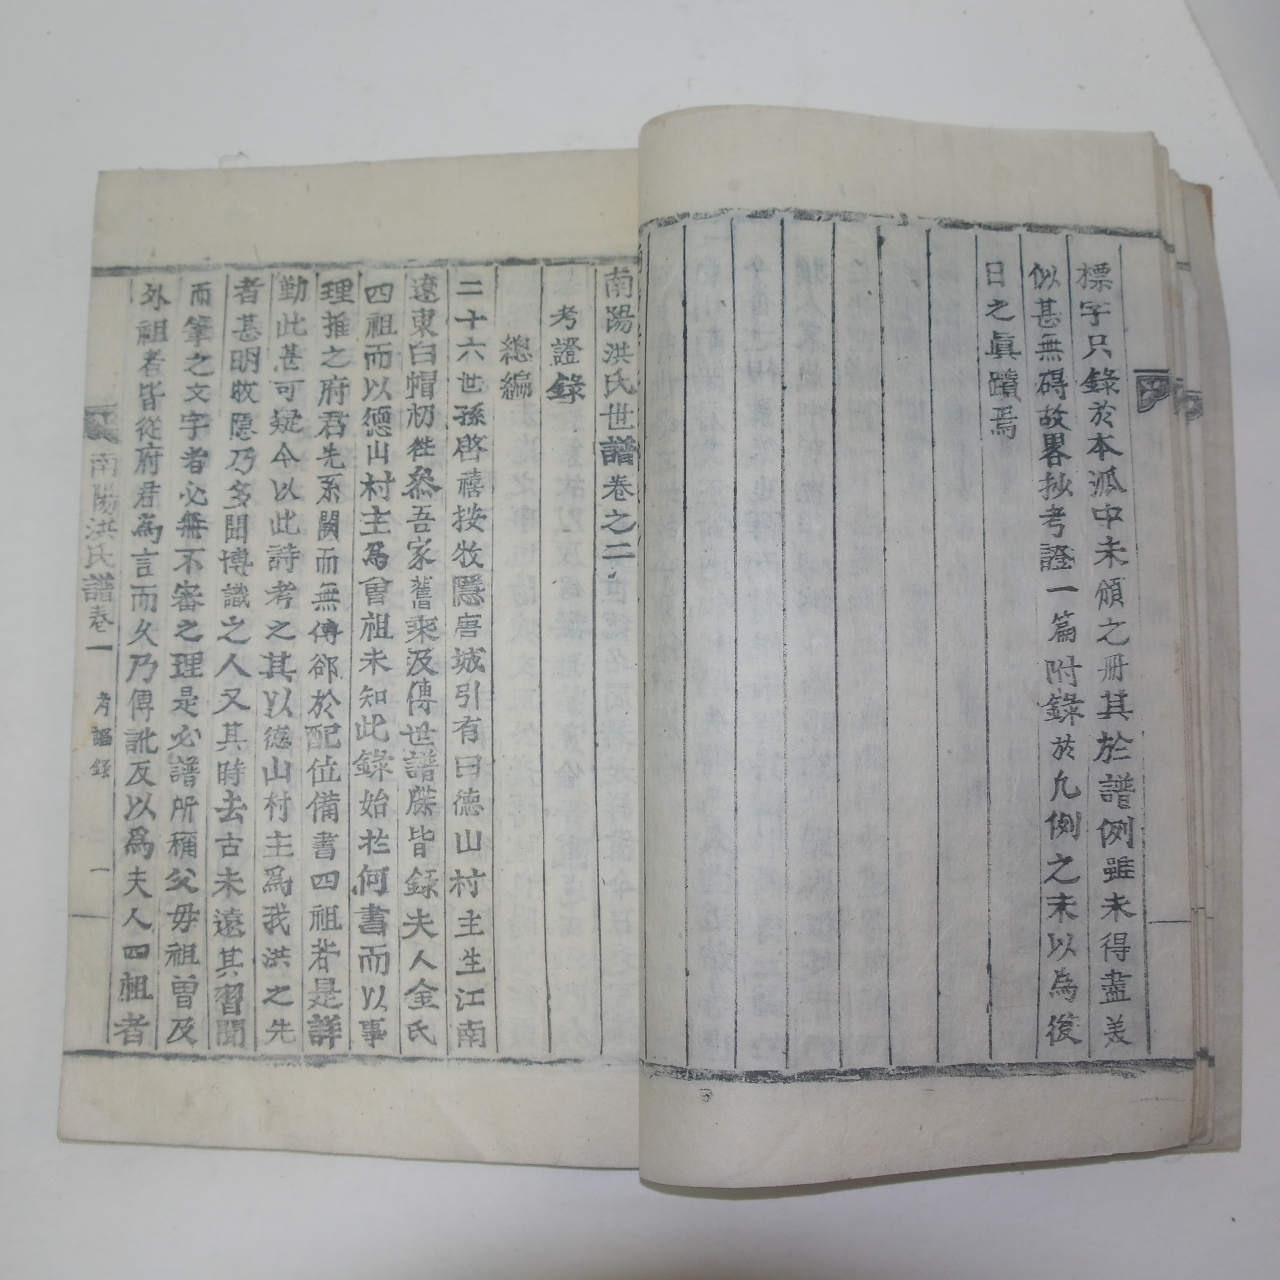 標字只錄於本派中未頒之冊其於譜例雖未得盡美
似甚無碍故畧抄考證一篇附錄於凡例之末以為後
日之眞蹟焉
南陽洪氏世譜卷之二
考證錄
總編
二十六世孫啓禧按牧隱唐城引有曰德山村主生江南
遼東白帽初徃叅吾家舊乘汲傳世譜牒皆錄夫人金氏
四祖而以德山村主爲曾祖未知此錄始於何書而以事
理推之府君先系闕而無傳郤於配位備書四祖若是詳
勤此甚可疑今以此詩考之其以德山村主爲我洪之先
者甚明牧隱乃多聞博識之人又其時去古未遠其習聞
而筆之文字者必無不審之理是必譜所稱父母祖曾及
外祖者皆從府君爲言而久乃傳訛反以爲夫人四祖者
南陽洪氏譜卷一 考證錄 一